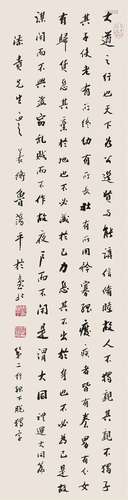 大道之行也天下為公選賢與能講信修睦故人不獨子
其子使老有所終幼有所長矜寡孤癈疾者皆有養男有分女
有歸貨惡其棄於地也不必藏於己力惡其不出於身也不必為己是故
謀閉而不興盜竊亂賊而不作故戶而不閉是謂大同禮運大同篇
先生正 魯蕩平於臺北
第二行下脫獨字